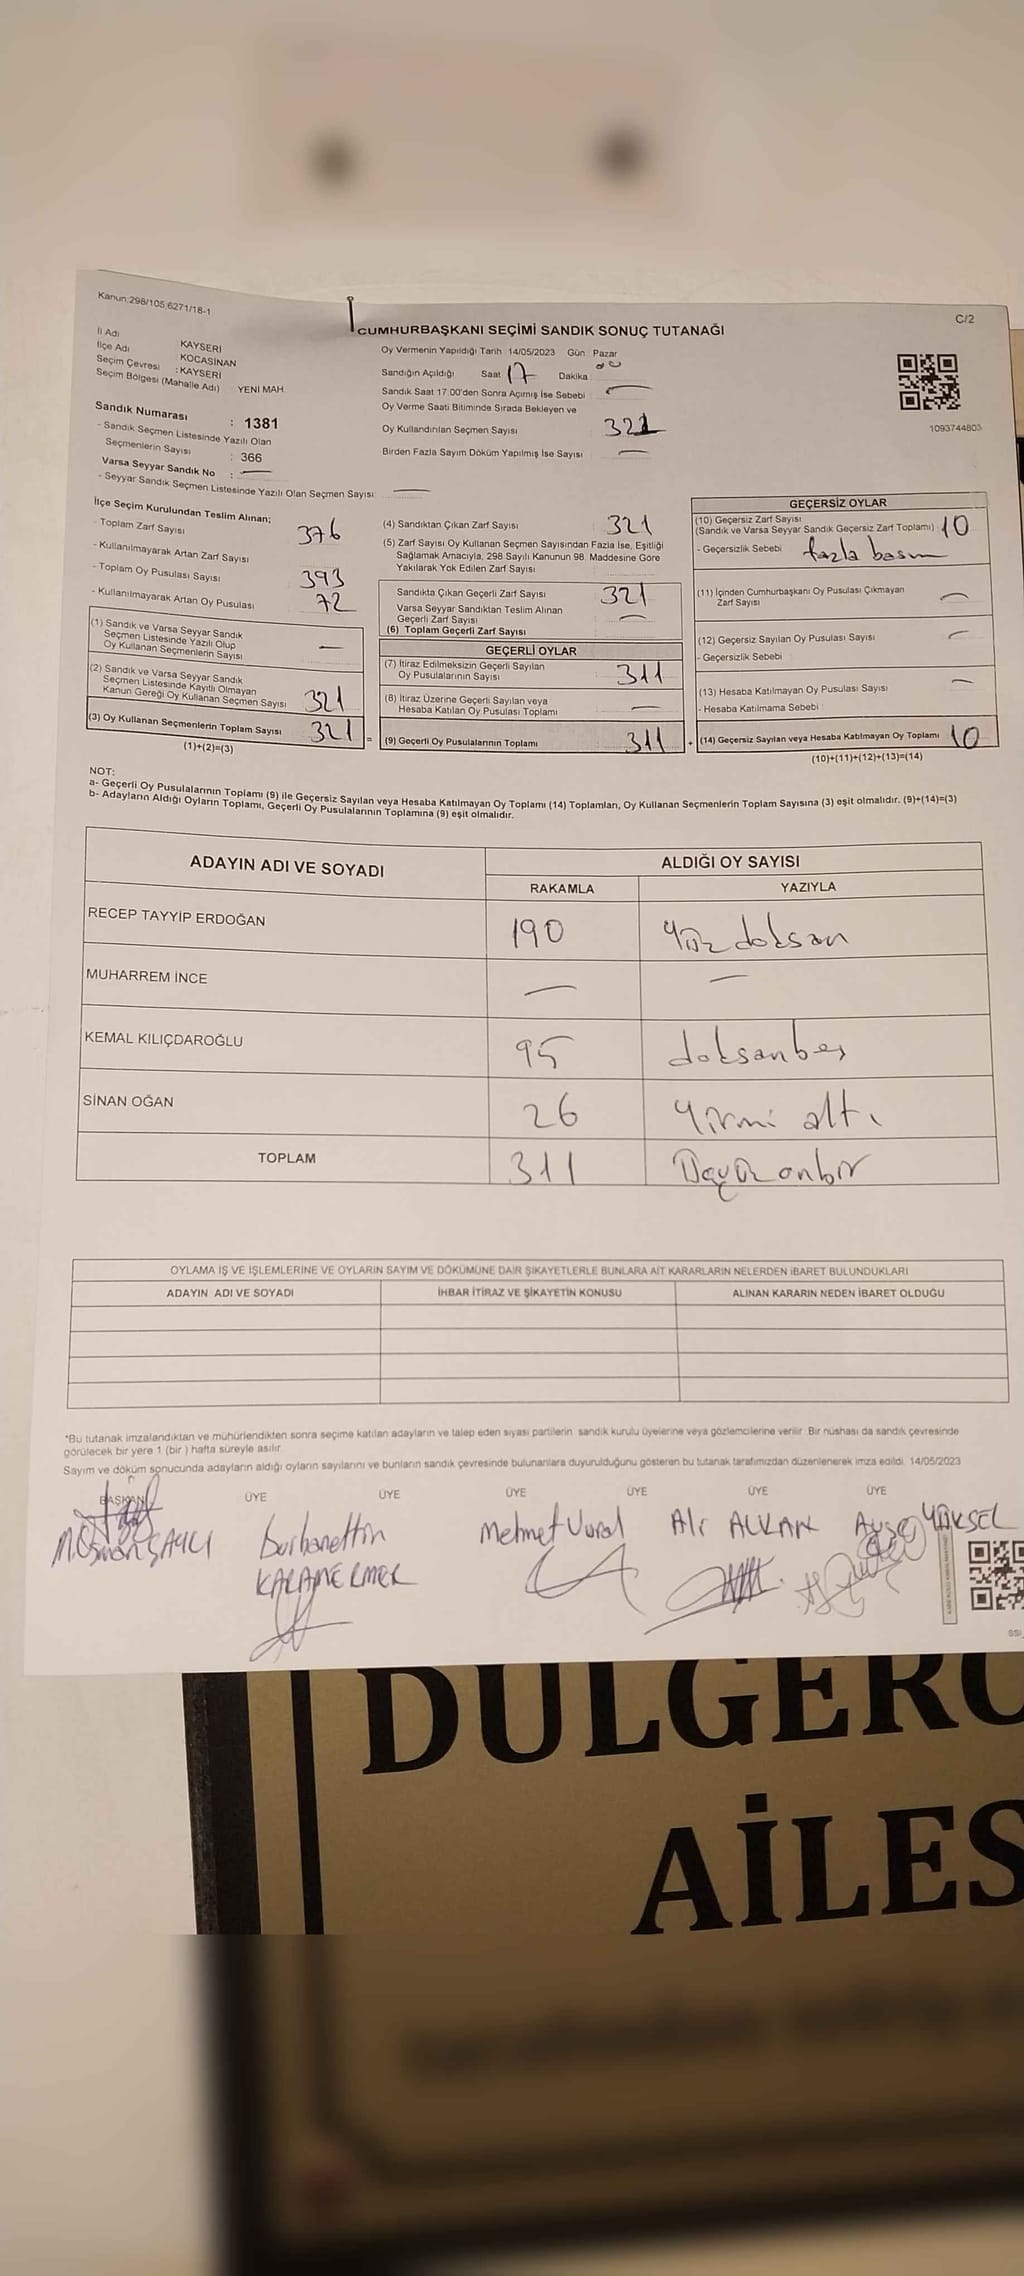 Kanun:298/105,6271/18-1
C/2
CUMHURBAŞKANI SEÇİMİ SANDIK SONUÇ TUTANAĞI
İl Adı KAYSERİ
İlçe Adı KOCASİNAN
Seçim Çevresi : KAYSERİ
Seçim Bölgesi (Mahalle Adı) YENİ MAH.
Sandık Numarası : 1381
- Sandık Seçmen Listesinde Yazılı Olan
Seçmenlerin Sayısı : 366
Varsa Seyyar Sandık No : —
- Seyyar Sandık Seçmen Listesinde Yazılı Olan Seçmen Sayısı: —
Oy Vermenin Yapıldığı Tarih 14/05/2023 Gün Pazar
Sandığın Açıldığı Saat 17 Dakika 00
Sandık Saat 17:00'den Sonra Açımış İse Sebebi —
Oy Verme Saati Bitiminde Sırada Bekleyen ve
Oy Kullandırılan Seçmen Sayısı 321
Birden Fazla Sayım Döküm Yapılmış İse Sayısı —
1093744803
İlçe Seçim Kurulundan Teslim Alınan;
- Toplam Zarf Sayısı 376
- Kullanılmayarak Artan Zarf Sayısı
- Toplam Oy Pusulası Sayısı 393
- Kullanılmayarak Artan Oy Pusulası 72
(1) Sandık ve Varsa Seyyar Sandık
Seçmen Listesinde Yazılı Olup
Oy Kullanan Seçmenlerin Sayısı —
(2) Sandık ve Varsa Seyyar Sandık
Seçmen Listesinde Kayıtlı Olmayan
Kanun Gereği Oy Kullanan Seçmen Sayısı 321
(3) Oy Kullanan Seçmenlerin Toplam Sayısı 321 =
(1)+(2)=(3)
(4) Sandıktan Çıkan Zarf Sayısı 321
(5) Zarf Sayısı Oy Kullanan Seçmen Sayısından Fazla İse, Eşitliği
Sağlamak Amacıyla, 298 Sayılı Kanunun 98. Maddesine Göre
Yakılarak Yok Edilen Zarf Sayısı
Sandıkta Çıkan Geçerli Zarf Sayısı 321
Varsa Seyyar Sandıktan Teslim Alınan
Geçerli Zarf Sayısı —
(6) Toplam Geçerli Zarf Sayısı
GEÇERLİ OYLAR
(7) İtiraz Edilmeksizin Geçerli Sayılan
Oy Pusulalarının Sayısı 311
(8) İtiraz Üzerine Geçerli Sayılan veya
Hesaba Katılan Oy Pusulası Toplamı —
(9) Geçerli Oy Pusulalarının Toplamı 311 +
GEÇERSİZ OYLAR
(10) Geçersiz Zarf Sayısı
(Sandık ve Varsa Seyyar Sandık Geçersiz Zarf Toplamı) 10
- Geçersizlik Sebebi fazla basım
(11) İçinden Cumhurbaşkanı Oy Pusulası Çıkmayan
Zarf Sayısı —
(12) Geçersiz Sayılan Oy Pusulası Sayısı —
- Geçersizlik Sebebi
(13) Hesaba Katılmayan Oy Pusulası Sayısı —
- Hesaba Katılmama Sebebi
(14) Geçersiz Sayılan veya Hesaba Katılmayan Oy Toplamı 10
(10)+(11)+(12)+(13)=(14)
NOT:
a- Geçerli Oy Pusulalarının Toplamı (9) ile Geçersiz Sayılan veya Hesaba Katılmayan Oy Toplamı (14) Toplamları, Oy Kullanan Seçmenlerin Toplam Sayısına (3) eşit olmalıdır. (9)+(14)=(3)
b- Adayların Aldığı Oyların Toplamı, Geçerli Oy Pusulalarının Toplamına (9) eşit olmalıdır.
ADAYIN ADI VE SOYADI ALDIĞI OY SAYISI
RAKAMLA YAZIYLA
RECEP TAYYİP ERDOĞAN 190 Yüz doksan
MUHARREM İNCE — —
KEMAL KILIÇDAROĞLU 95 doksanbeş
SİNAN OĞAN 26 Yirmi altı
TOPLAM 311 Üçyüz onbir
OYLAMA İŞ VE İŞLEMLERİNE VE OYLARIN SAYIM VE DÖKÜMÜNE DAİR ŞİKAYETLERLE BUNLARA AİT KARARLARIN NELERDEN İBARET BULUNDUKLARI
ADAYIN ADI VE SOYADI İHBAR İTİRAZ VE ŞİKAYETİN KONUSU ALINAN KARARIN NEDEN İBARET OLDUĞU
*Bu tutanak imzalandıktan ve mühürlendikten sonra seçime katılan adayların ve talep eden siyasi partilerin sandık kurulu üyelerine veya gözlemcilerine verilir. Bir nüshası da sandık çevresinde
görülecek bir yere 1 (bir ) hafta süreyle asılır.
Sayım ve döküm sonucunda adayların aldığı oyların sayılarını ve bunların sandık çevresinde bulunanlara duyurulduğunu gösteren bu tutanak tarafımızdan düzenlenerek imza edildi. 14/05/2023
BAŞKAN ÜYE ÜYE ÜYE ÜYE ÜYE ÜYE
M.Osman SAYLI Burhanettin Mehmet Vural Ali ALKAN Ayşe YÜKSEL
KARAMERMER
DULGERO
AİLES